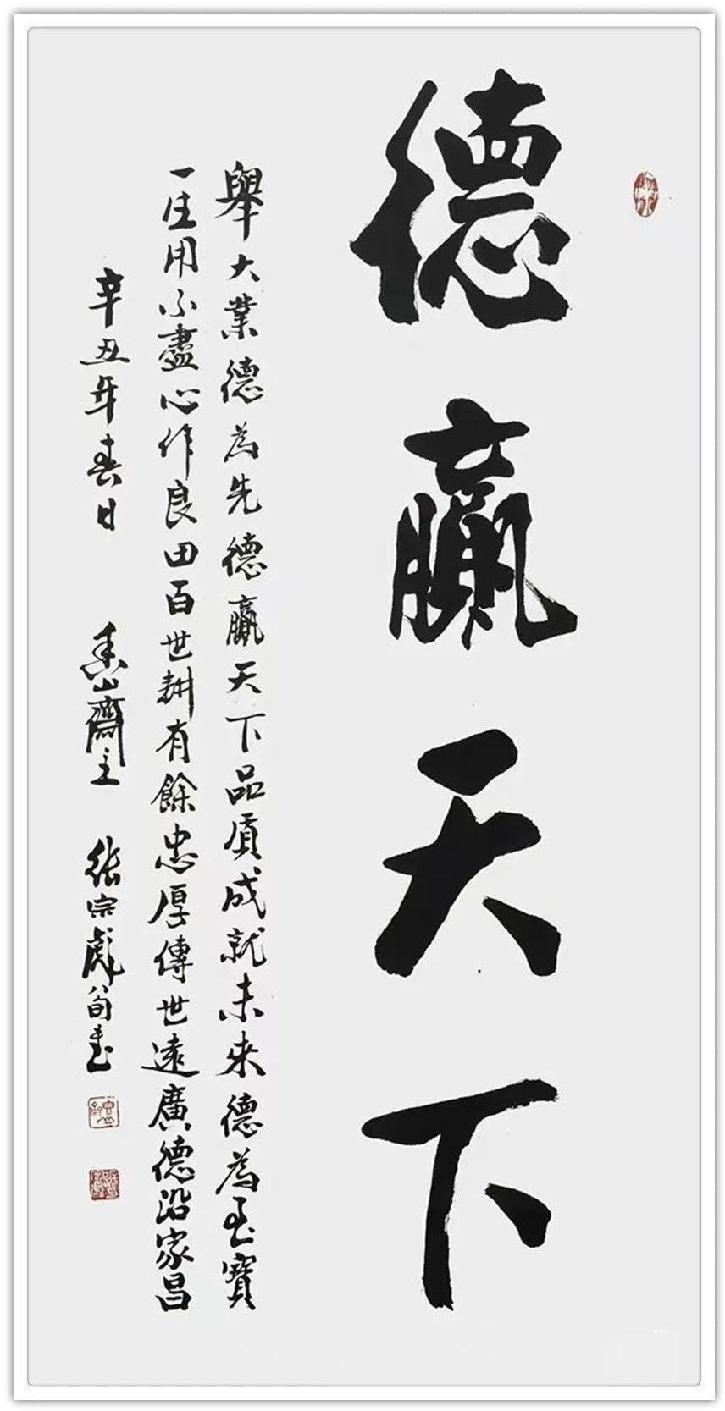 德贏天下
舉大業德為先德贏天下品质成就未来德為至寶
一生用不盡心作良田百世耕有餘忠厚傳世遠廣德沿家昌
辛丑年春日 春山齋主 張宗彪 書